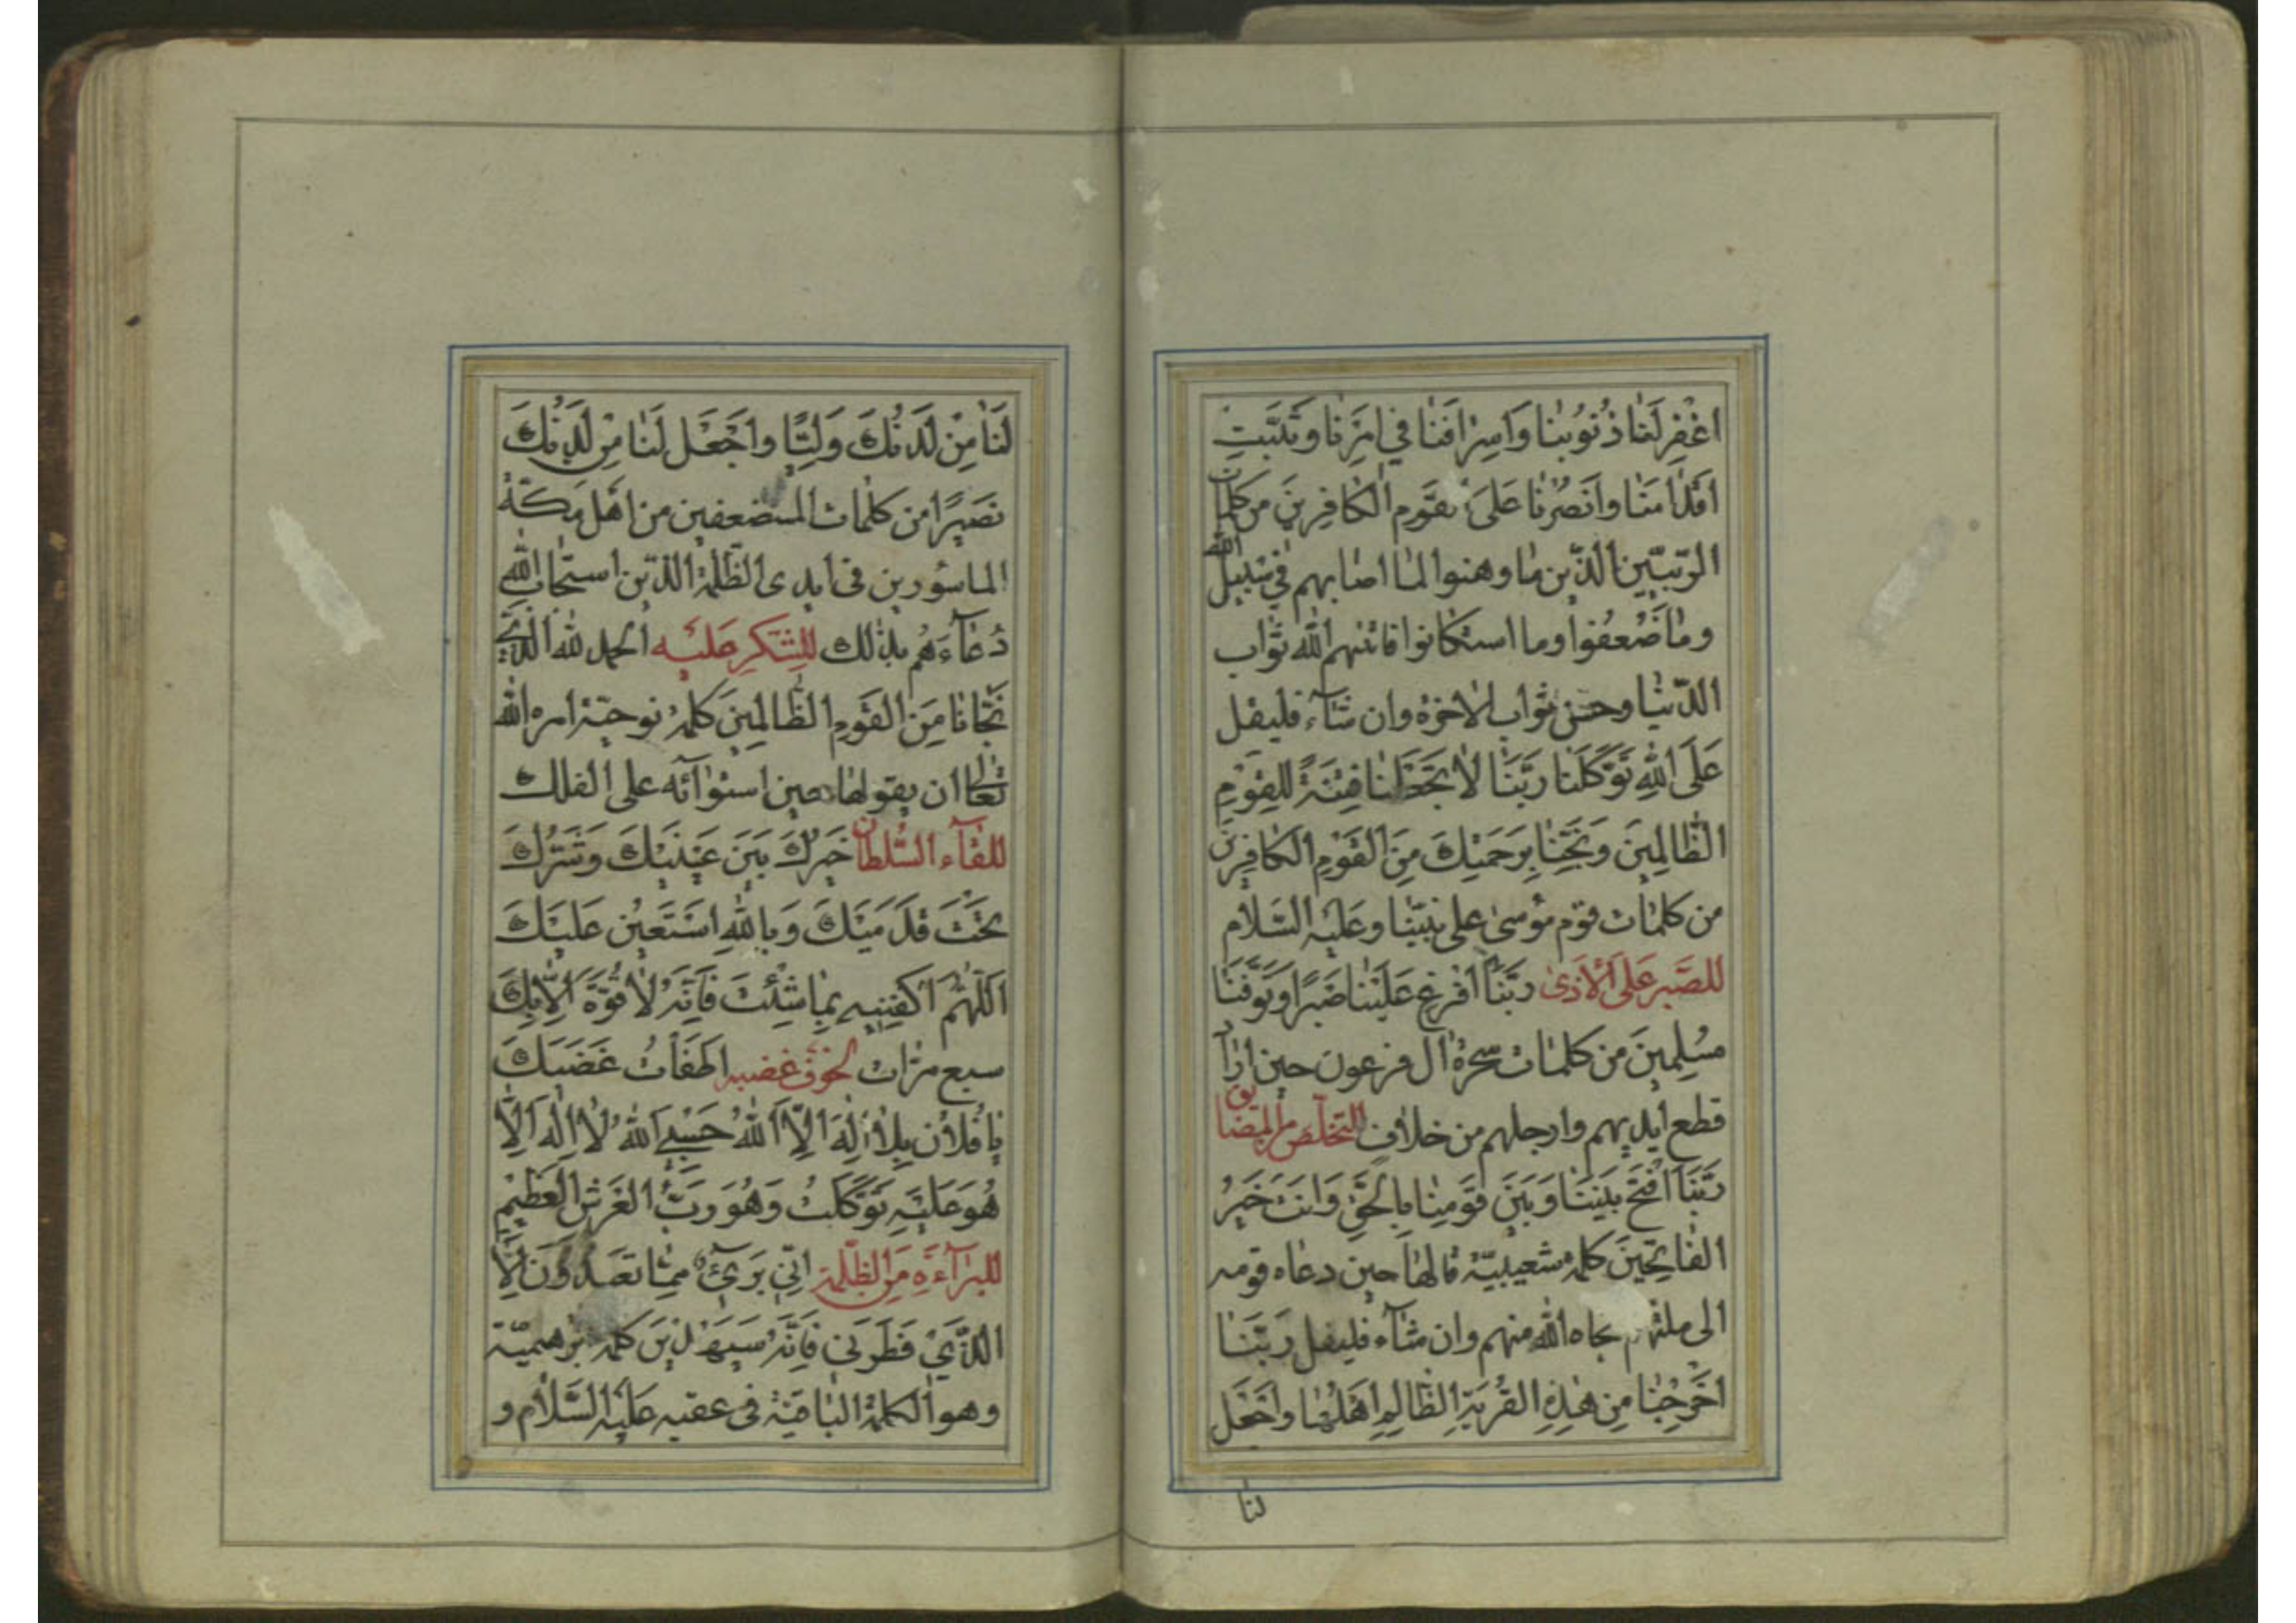 اغْفِرْ لَنَا ذُنُوبَنَا وَاِسْرَافَنَا فِي اَمْرِنَا وَثَبِّتْ
اَقْدَامَنَا وَانْصُرْنَا عَلَى الْقَوْمِ الْكَافِرِينَ من كلمات
الرّبّيّين الّذين ما وهنوا لما اصابهم فى سبيل الله
وما ضعفوا وما استكانوا فاتيهم الله ثواب
الدّنيا وحسن ثواب الاخرة وان شاء فليقل
عَلَى اللهِ تَوَكَّلْنَا رَبَّنَا لَا تَجْعَلْنَا فِتْنَةً لِلْقَوْمِ
الظَّالِمِينَ وَنَجِّنَا بِرَحْمَتِكَ مِنَ الْقَوْمِ الْكَافِرِينَ
من كلمات قوم موسى على نبيّنا وعليه السّلام
للصّبر على الاذى رَبَّنَا اَفْرِغْ عَلَيْنَا صَبْرًا وَتَوَفَّنَا
مُسْلِمِينَ من كلمات سحرة ال فرعون حين اراد
قطع ايديهم وارجلهم من خلاف للتخلّص من المضايق
رَبَّنَا افْتَحْ بَيْنَنَا وَبَيْنَ قَوْمِنَا بِالْحَقِّ وَاَنْتَ خَيْرُ
الْفَاتِحِينَ كلمة شعيبيّة قالها حين دعاه قومه
الى ملّتهم نجاه الله منهم وان شاء فليقل رَبَّنَا
اَخْرِجْنَا مِنْ هٰذِهِ الْقَرْيَةِ الظَّالِمِ اَهْلُهَا وَاجْعَلْ
لنا
لَنَا مِنْ لَدُنْكَ وَلِيًّا وَاجْعَلْ لَنَا مِنْ لَدُنْكَ
نَصِيرًا من كلمات المستضعفين من اهل مكّة
الماسورين فى ايدى الظّلمة الّذين استجاب الله
دعاءهم بذلك للشّكر عليه الحمد لله الّذى
نَجَّانَا مِنَ الْقَوْمِ الظَّالِمِينَ كلمة نوحيّة امره الله
تعالى ان يقولها حين استوائه على الفلك
للقاء السّلطان خَيْرُكَ بَيْنَ عَيْنَيْكَ وَشَرُّكَ
تَحْتَ قَدَمَيْكَ وَبِاللهِ اَسْتَعِينُ عَلَيْكَ
اَللّٰهُمَّ اكْفِنِيهِ بِمَا شِئْتَ فَاِنَّهُ لَا قُوَّةَ اِلَّا بِكَ
سبع مرّات لخوف غضبه اَطْفَأْتُ غَضَبَكَ
يَا فُلَانُ بِلَا اِلٰهَ اِلَّا اللهُ حَسْبِيَ اللهُ لَا اِلٰهَ اِلَّا
هُوَ عَلَيْهِ تَوَكَّلْتُ وَهُوَ رَبُّ الْعَرْشِ الْعَظِيمِ
للبراءة من الظّلمة اِنِّي بَرِيءٌ مِمَّا تَعْبُدُونَ اِلَّا
الَّذِي فَطَرَنِي فَاِنَّهُ سَيَهْدِينِ كلمة برهيميّة
وهو الكلمة الباقية فى عقبه عليه السّلام و